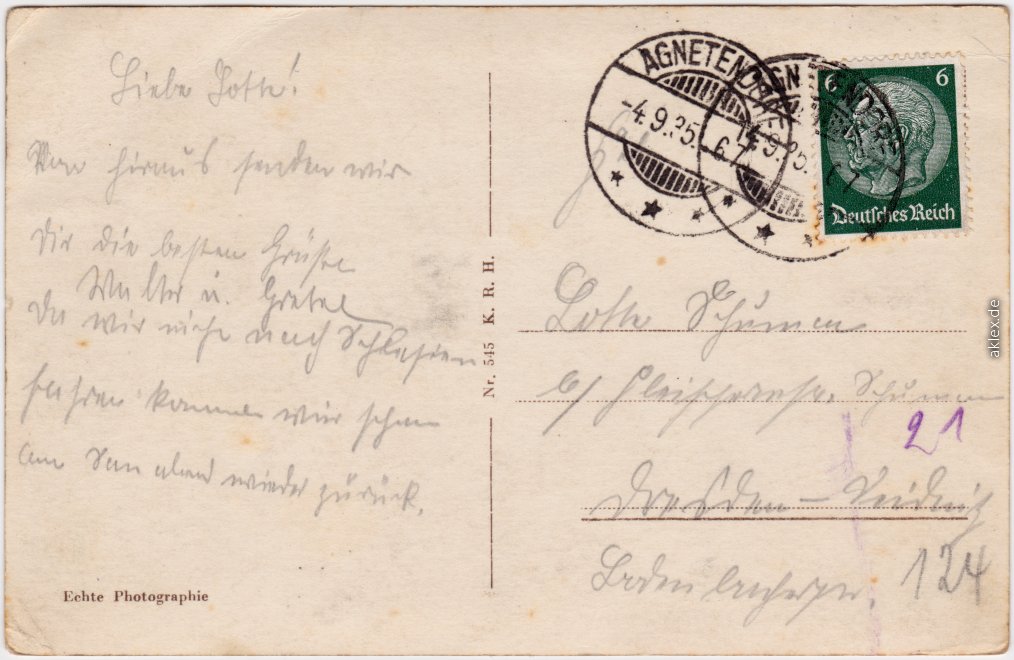 Liebe Lotte!
Von hieraus senden wir
Dir die besten Grüße
Walter u. Gretel
Da wir nicht nach Schlesien
fahren kommen wir schon
am Sonnabend wieder zurück.
Echte Photographie
Nr. 545 K. R. H.
AGNETENDORF
-4.9.35. 6-7
AGNETENDORF
-4.9.35.
6 6
Deutsches Reich
Lotte Schumann
b/ Schumann
21
Dresden - Leidnitz
124
aklex.de